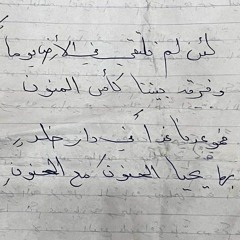 لئن لم نلتقي في الأرض يوماً
وفرقه بيننا كأس المنون
فموعدنا غداً في دار خلد
بها يحيا الحنون مع الحنون